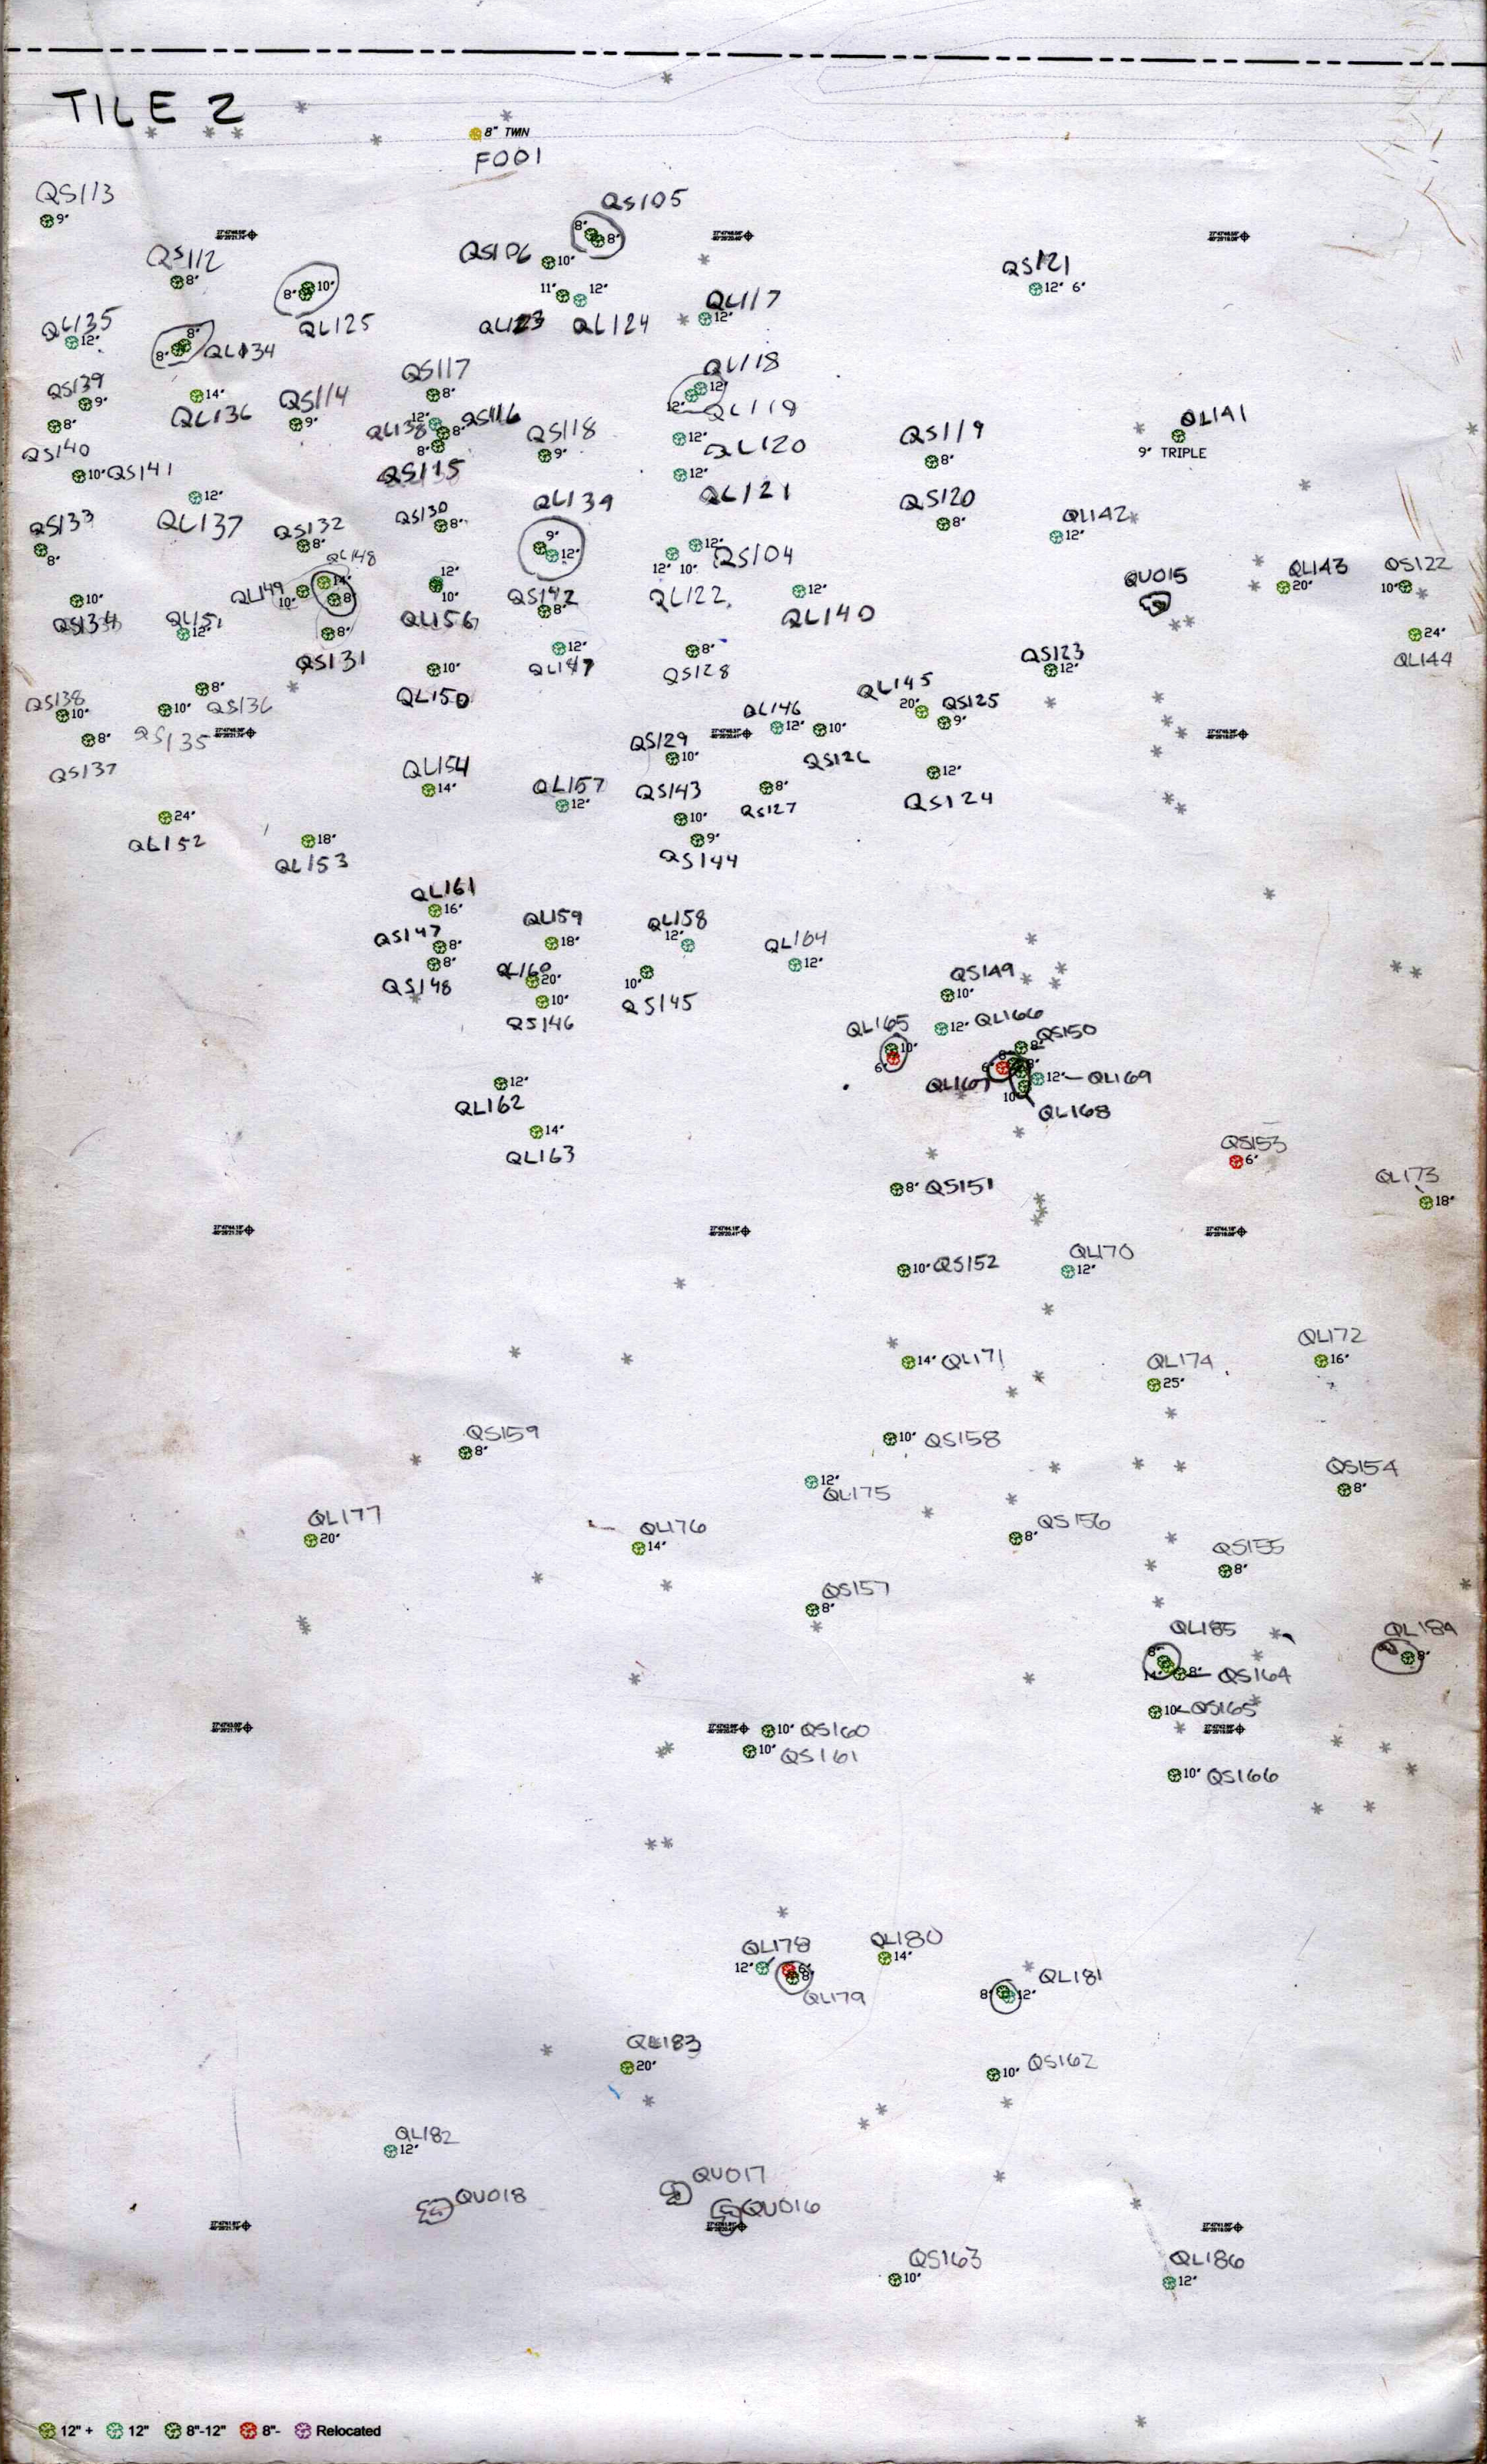 TILE 2
8" TWIN
F001
QS113
9"
QS105
8"
8"
QS106
10"
QS112
8"
8"
10"
QL125
11"
12"
QL123
QL124
QL117
12"
QS121
12" 6"
QL135
12"
8"
8"
QL134
QS139
9"
8"
QS140
14"
QL136
QS114
9"
QS117
8"
QL118
12"
12"
QL119
12"
QL138
QS116
8"
8"
QS115
QS118
9"
12"
QL120
QS119
8"
QL141
9" TRIPLE
10"
QS141
12"
QL121
12"
QL137
QL139
9"
12"
QS133
8"
QS132
8"
QS130
8"
QS120
8"
QL142
12"
12"
QS104
12" 10"
QL122
QL148
14"
8"
QL149
10"
12"
10"
QL156
QS142
8"
12"
QL140
QU015
QL143
20"
QS122
10"
10"
QS134
QL151
12"
8"
QS131
12"
QL147
8"
QS128
24"
QL144
QS123
12"
10"
QL150
8"
QS136
QS138
10"
10"
QS135
8"
QS137
QL145
20"
QS125
9"
QL146
12"
10"
QS126
QS129
10"
12"
QS124
QL154
14"
QL157
12"
QS143
10"
8"
QS127
24"
QL152
18"
QL153
9"
QS144
QL161
16"
QS147
8"
8"
QS148
QL159
18"
QL158
12"
QL164
12"
QL160
20"
10"
QS146
10"
QS145
QS149
10"
QL165
10"
6"
12"
QL166
QS150
8"
8"
6"
8"
QL167
12"
QL169
10"
QL168
12"
QL162
14"
QL163
QS153
6"
QL173
18"
8"
QS151
10"
QS152
QL170
12"
14"
QL171
QL172
16"
QL174
25"
QS159
8"
10"
QS158
12"
QL175
QS154
8"
QL177
20"
QL176
14"
QS156
8"
QS155
8"
QS157
8"
QL185
8"
8"
QS164
QL184
8"
10"
QS165
10"
QS160
10"
QS161
10"
QS166
QL178
12"
6"
8"
QL179
QL180
14"
QL181
8"
12"
QL183
20"
QS162
10"
QL182
12"
QU018
QU017
QU016
QS163
10"
QL186
12"
12" +
12"
8"-12"
8"-
Relocated